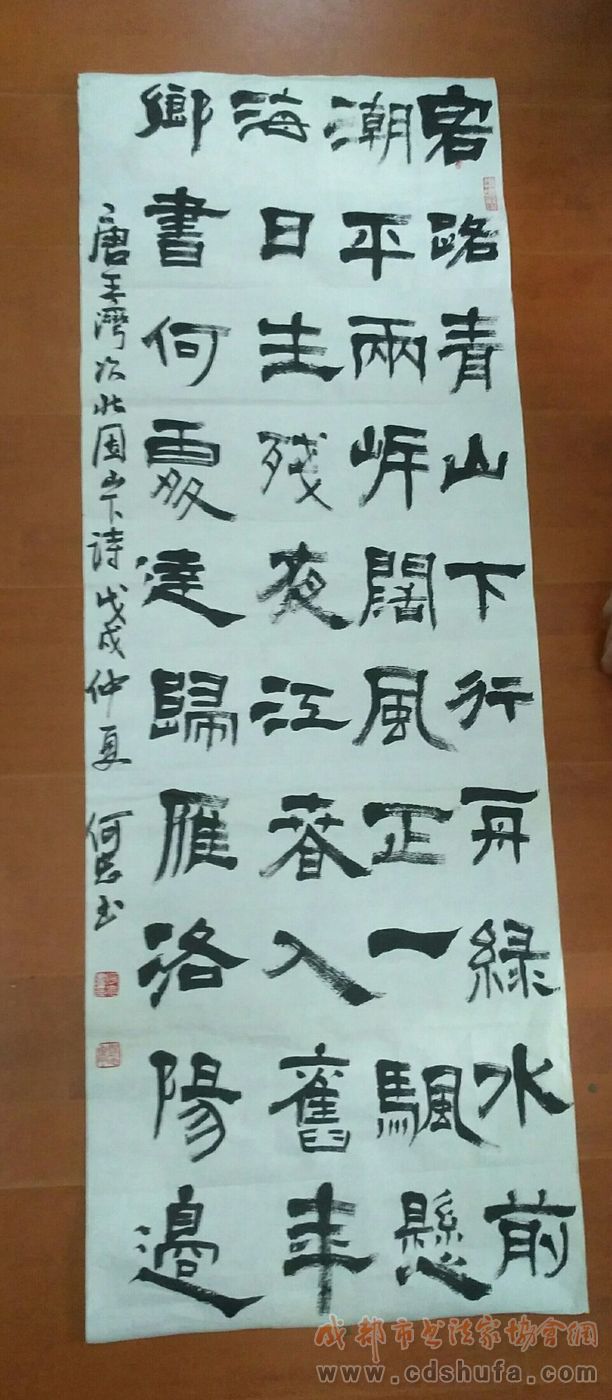 客路青山下行舟綠水前
潮平兩岸闊風正一颿懸
海日生残夜江春入舊年
鄉書何處達歸雁洛陽邊
唐王灣次北固山下詩 戊戌仲夏 何忠书
成都市书法家协会網
www.cdshufa.com